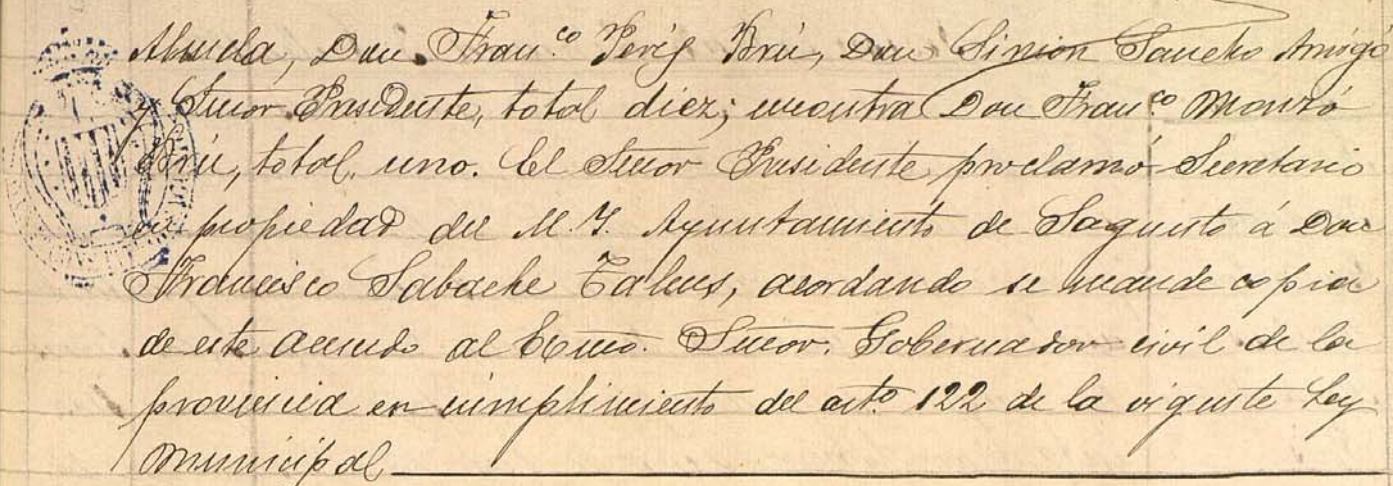 Abuela, Don Fran.co Peris Brú, Don Simion Sancho Amigó
y Señor Presidente, total diez; encontra Don Fran.co Monzó
Brú, total, uno. El Señor Presidente proclamó Secretario
en propiedad del M. Y. Ayuntamiento de Sagunto á Don
Francisco Sabache Tales, acordando se mande copia
de este acuerdo al Exmo. Señor. Gobernador civil de la
provincia en cumplimiento del arto. 122 de la vigente Ley
Municipal